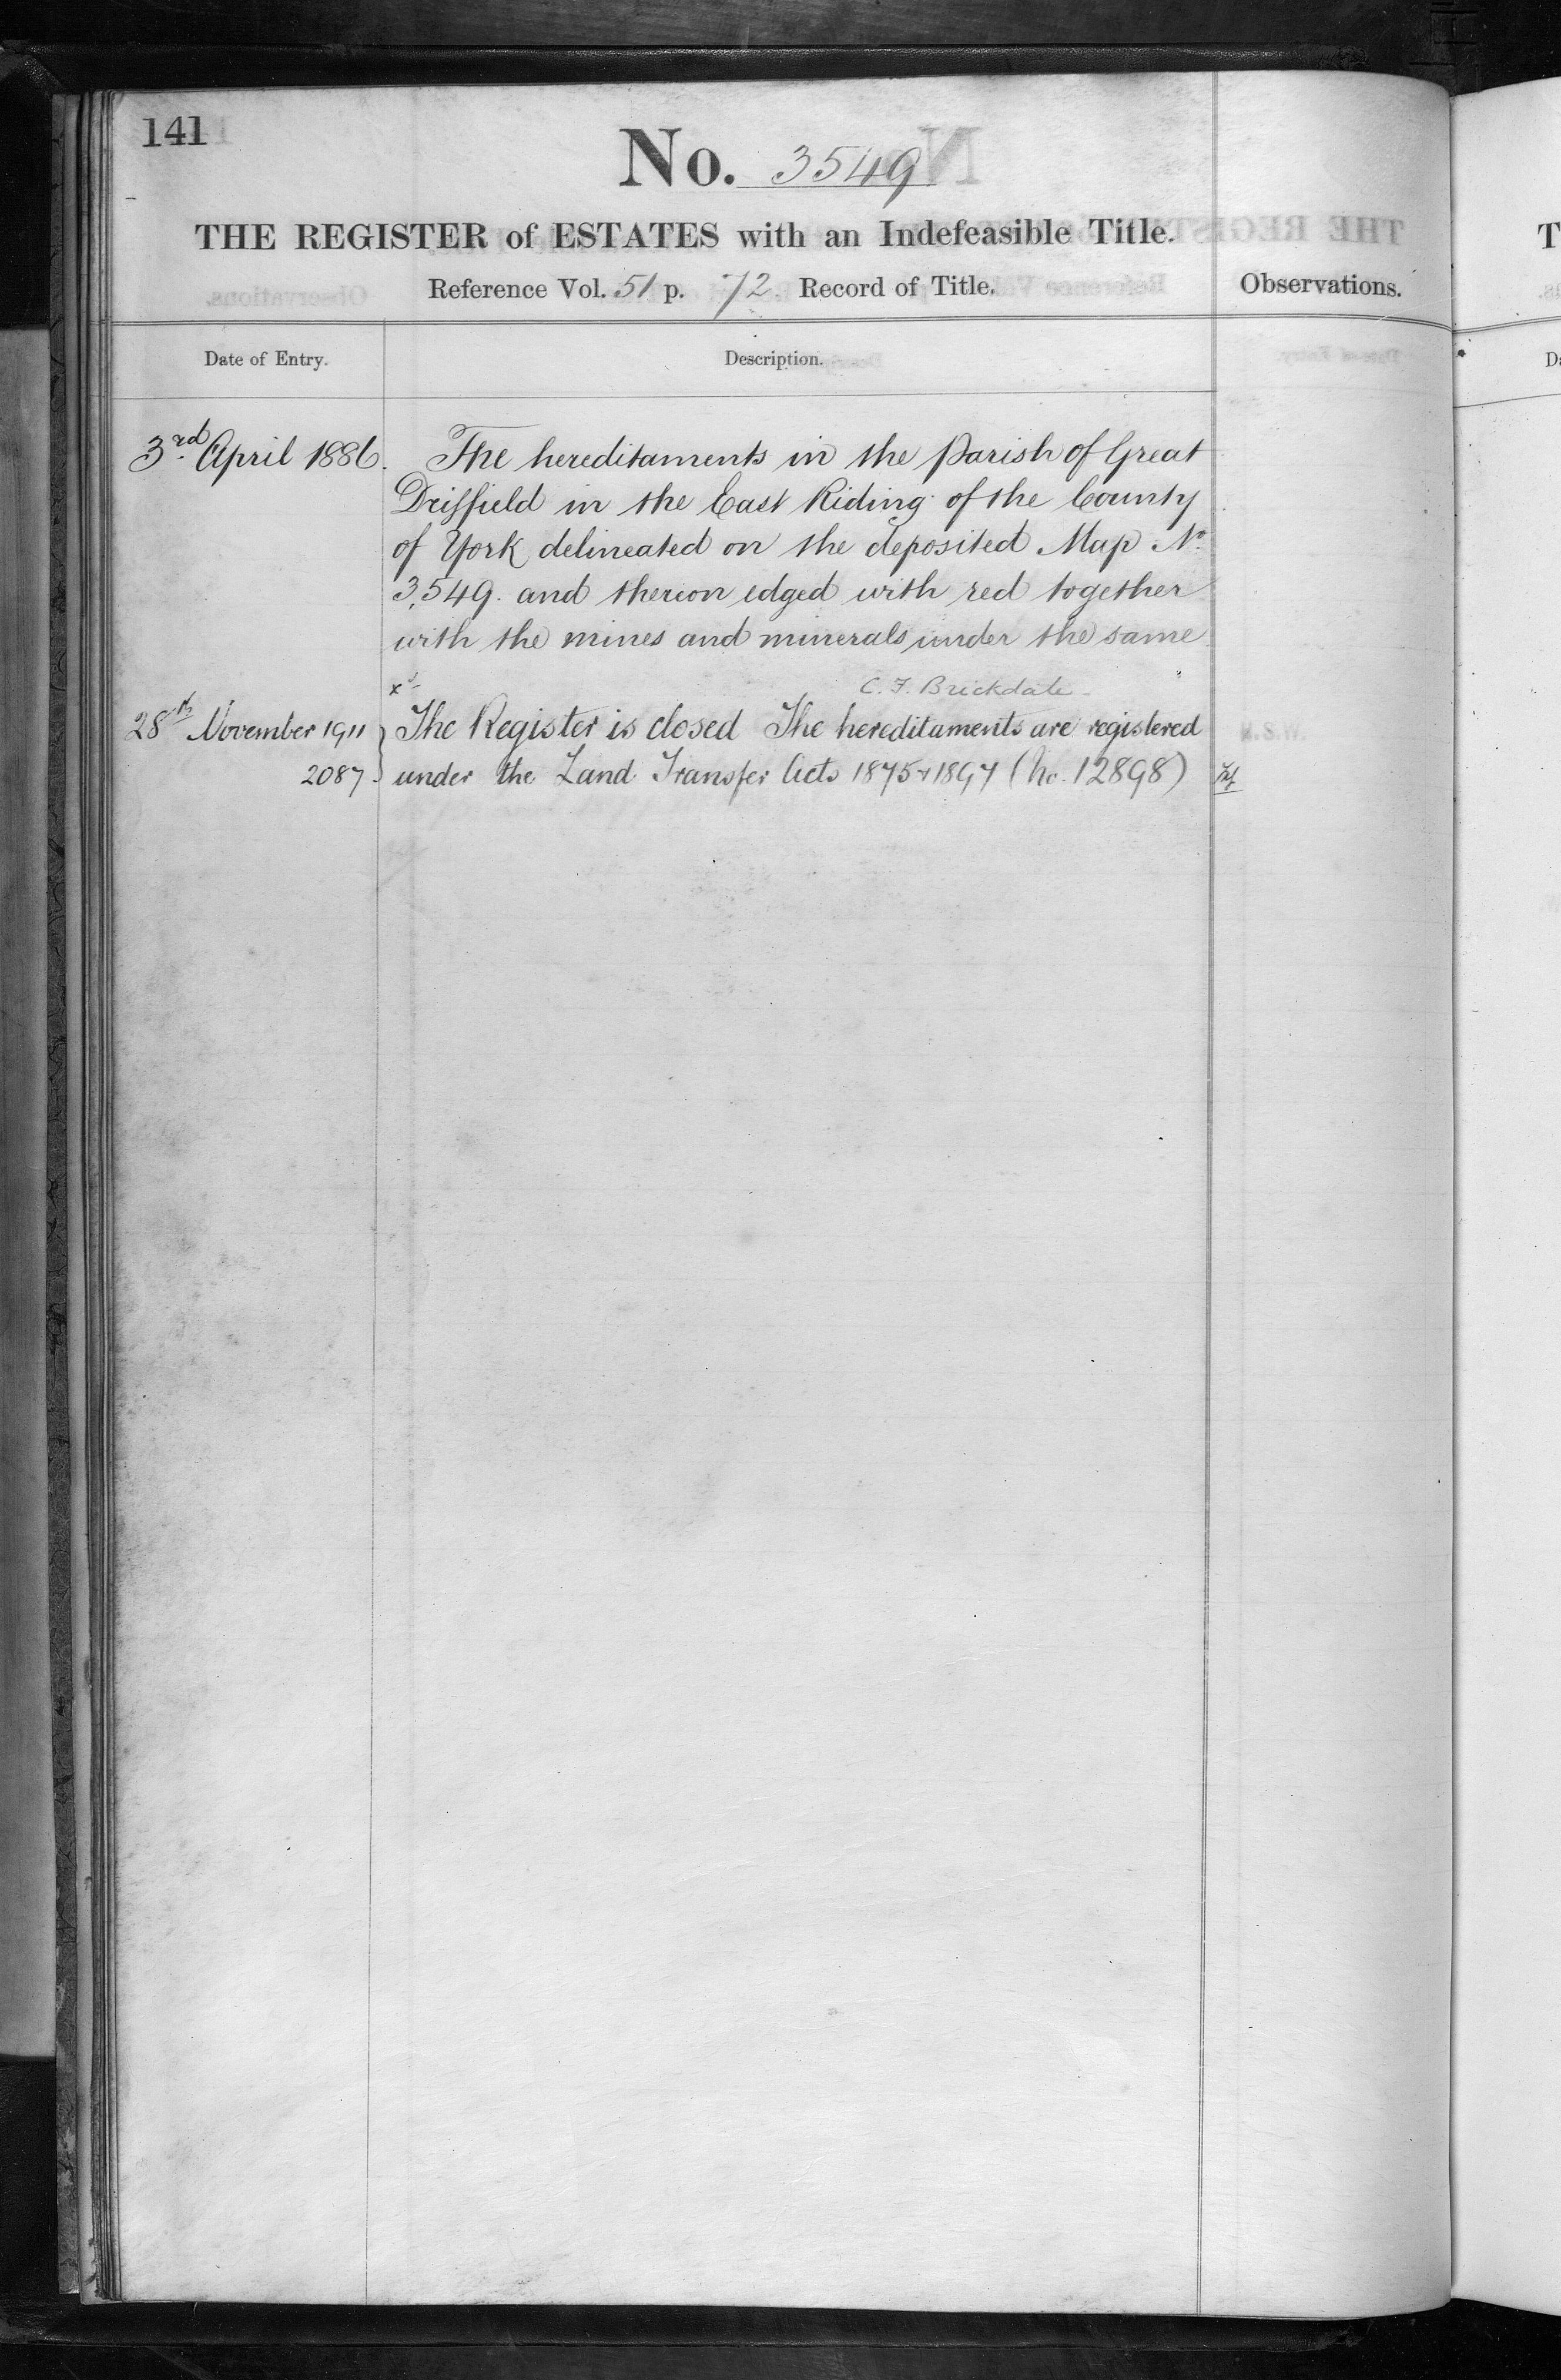 141
No. 3549
THE REGISTER of ESTATES with an Indefeasible Title.
Reference Vol. 51 p. 72 Record of Title.
Observations.
Date of Entry.
Description.
3rd April 1886.
The hereditaments in the Parish of Great
Driffield in the East Riding of the County
of York delineated on the deposited Map No
3,549. and thereon edged with red together
with the mines and minerals under the same
C. F. Brickdale
28th November 1911
The Register is closed The hereditaments are registered
2087
under the Land Transfer Acts 1875 & 1897 (No. 12898)